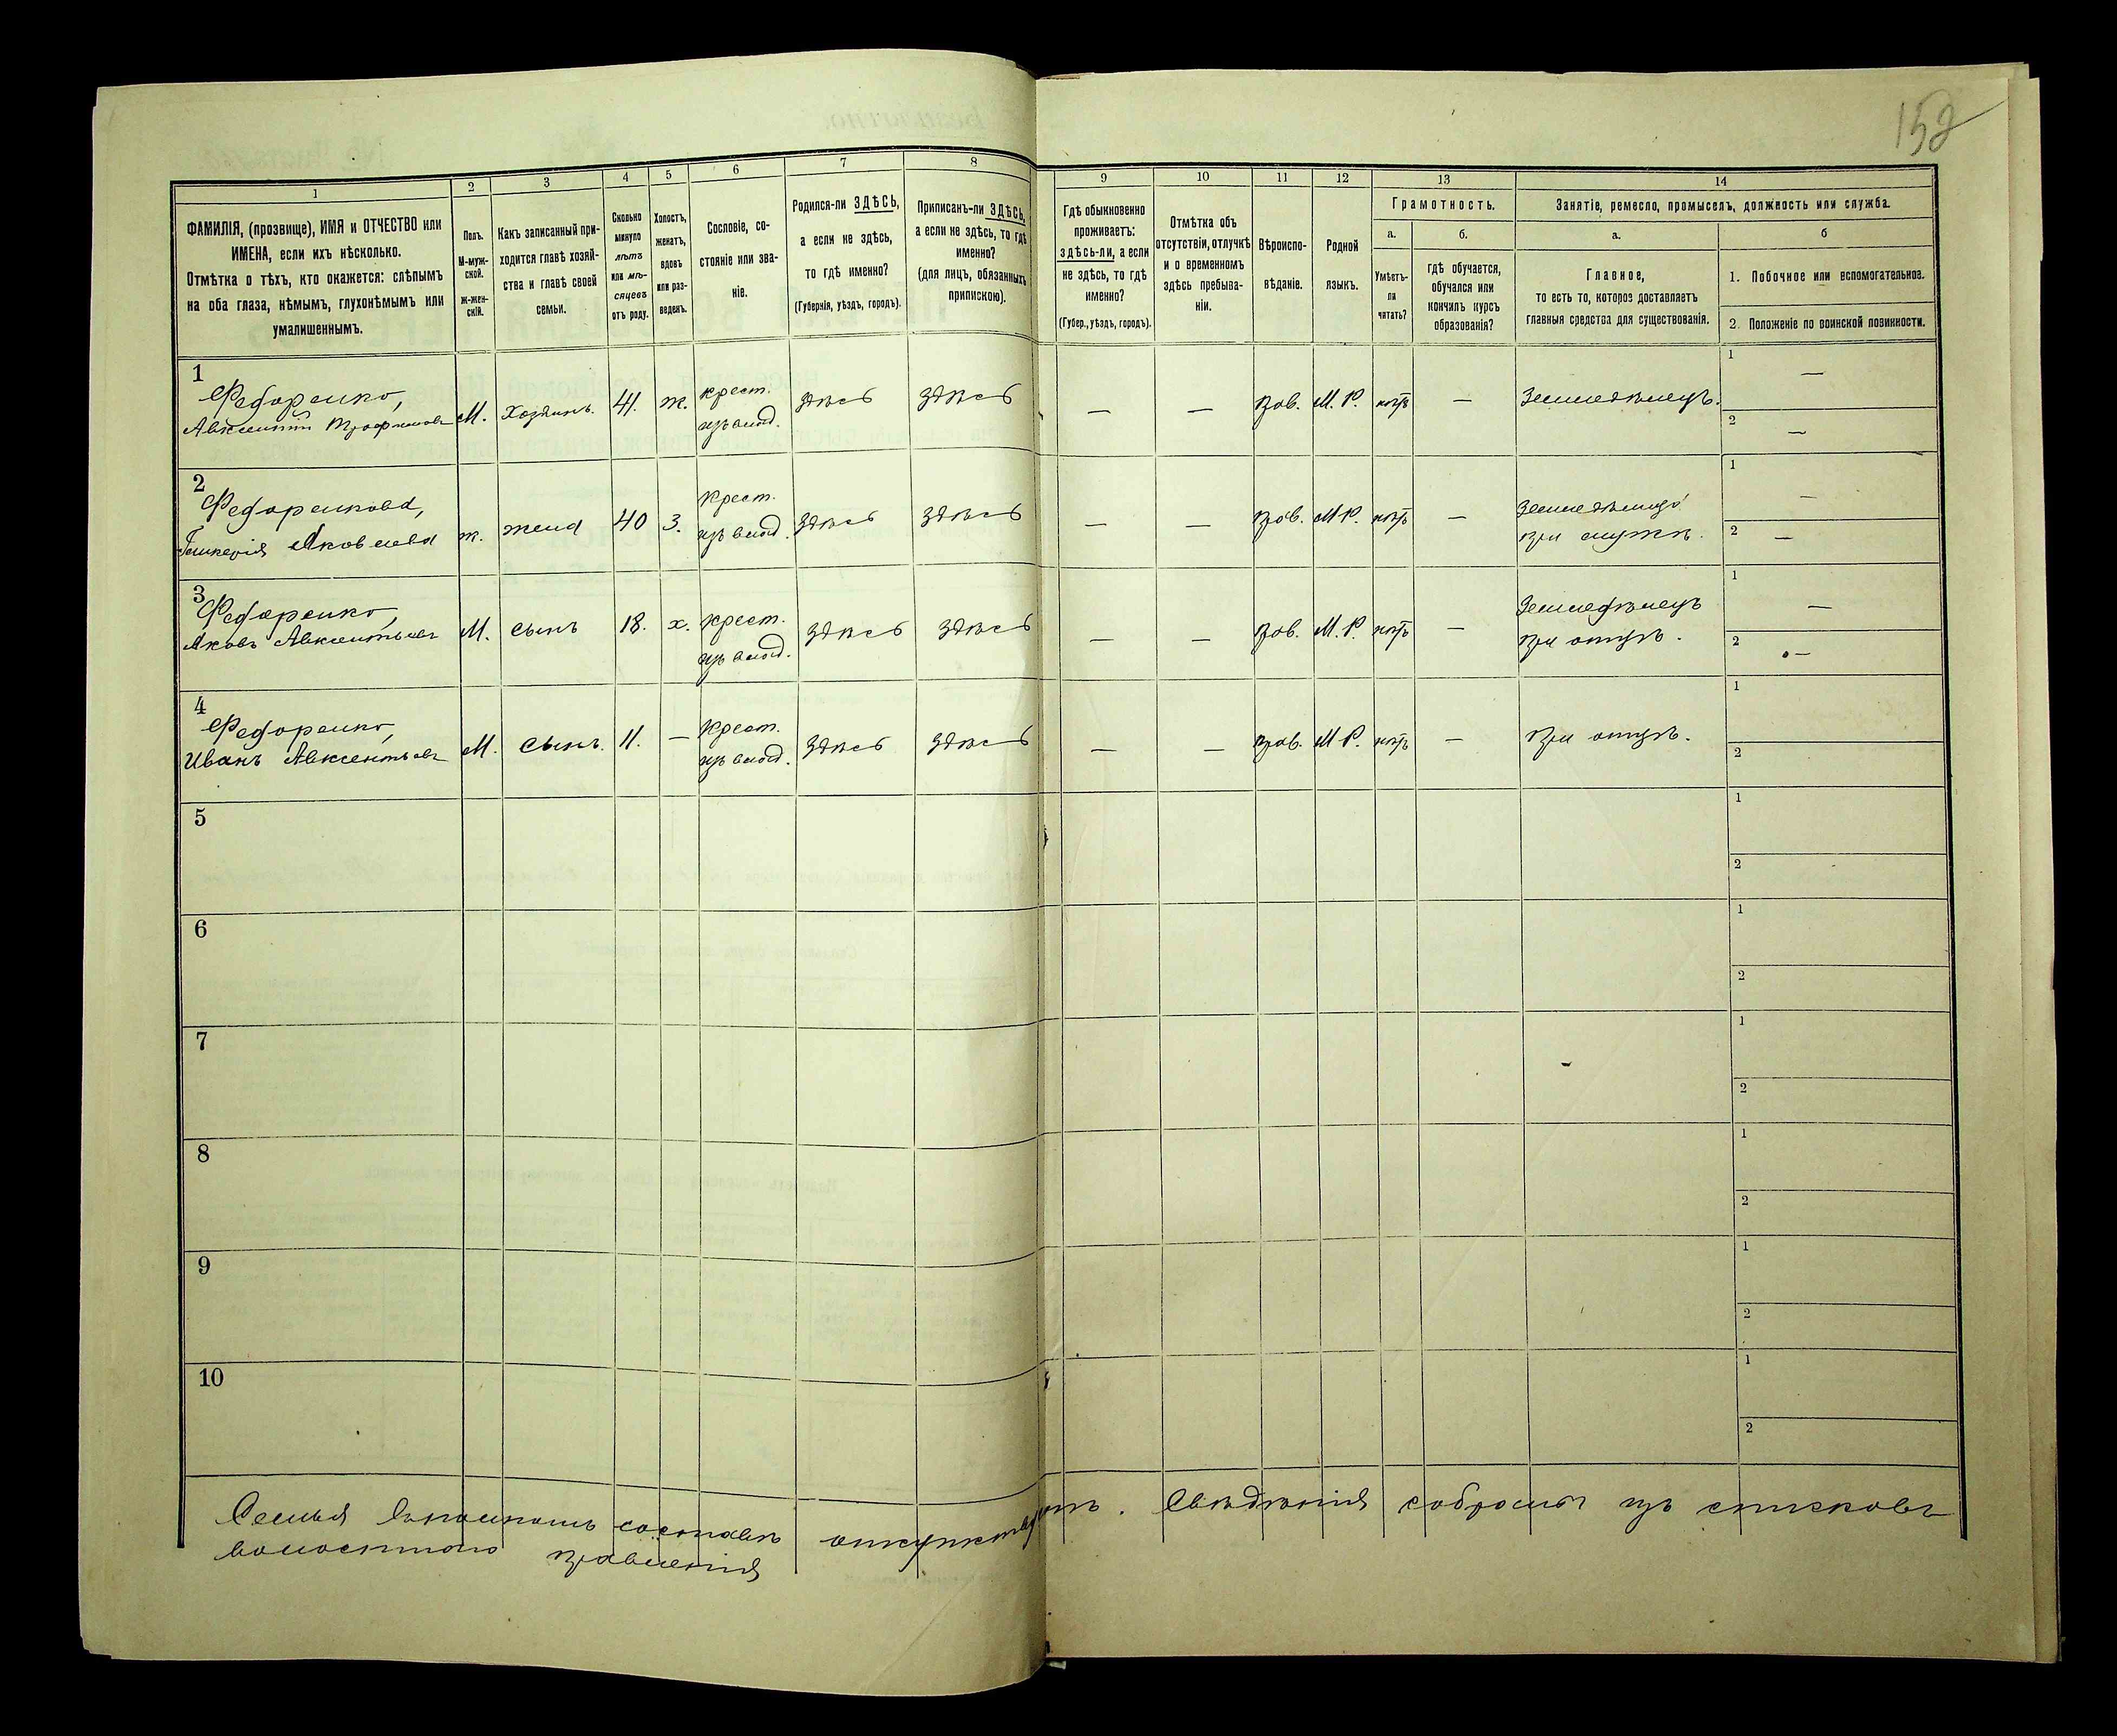 152
1 2 3 4 5 6 7 8 9 10 11 12 13 14
ФАМИЛІЯ, (прозвище), ИМЯ и ОТЧЕСТВО или
ИМЕНА, если ихъ нѣсколько.
Отмѣтка о тѣхъ, кто окажется: слѣпымъ
на оба глаза, нѣмымъ, глухонѣмымъ или
умалишеннымъ.
Полъ.
М-муж-
ской.
Ж-жен-
скій.
Какъ записанный при-
ходится главѣ хозяй-
ства и главѣ своей
семьи.
Сколько
минуло
лѣтъ
или мѣ-
сяцевъ
отъ роду.
Холостъ,
женатъ,
вдовъ
или раз-
веденъ.
Сословіе, со-
стояніе или зва-
ніе.
Родился-ли ЗДѢСЬ,
а если не здѣсь,
то гдѣ именно?
(Губернія, уѣздъ, городъ).
Приписанъ-ли ЗДѢСЬ,
а если не здѣсь, то гдѣ
именно?
(для лицъ, обязанныхъ
припискою).
Гдѣ обыкновенно
проживаетъ:
здѣсь-ли, а если
не здѣсь, то гдѣ
именно?
(Губер., уѣздъ, городъ).
Отмѣтка объ
отсутствіи, отлучкѣ
и о временномъ
здѣсь пребыва-
ніи.
Вѣроиспо-
вѣданіе.
Родной
языкъ.
Грамотность.
а.
Умѣетъ-
ли
читать?
б.
гдѣ обучается,
обучался или
кончилъ курсъ
образованія?
Занятіе, ремесло, промыселъ, должность или служба.
а.
Главное,
то есть то, которое доставляетъ
главныя средства для существованія.
б
1. Побочное или вспомогательное.
2. Положеніе по воинской повинности.
1
Федоренко,
Авксентій Трофимовъ М. Хозяинъ. 41. ж. крест. из влад. здѣсь здѣсь — — прав. М. Р. нѣтъ — Земледѣлецъ. 1 — 2 —
2
Федоренкова,
Яковлева ж. жена 40 з. Крест. из влад. здѣсь здѣсь — — прав. М Р. нѣтъ — при мужѣ. 1 — 2 —
3
Федоренко,
Яковъ Авксентьевъ М. сынъ 18. х. крест. из влад. здѣсь здѣсь — — прав. М. Р. нѣтъ — Земледѣлецъ при отцѣ. 1 — 2 —
4
Федоренко,
Иванъ Авксентьевъ М. сынъ. 11. — Крест. из влад. здѣсь здѣсь — — прав. М Р. нѣтъ — при отцѣ. 1 2
5 1 2
6 1 2
7 1 2
8 1 2
9 1 2
10 1 2
Семья въ полномъ составѣ отсутствуетъ. Свѣдѣнія собраны изъ списковъ
волостного правленія